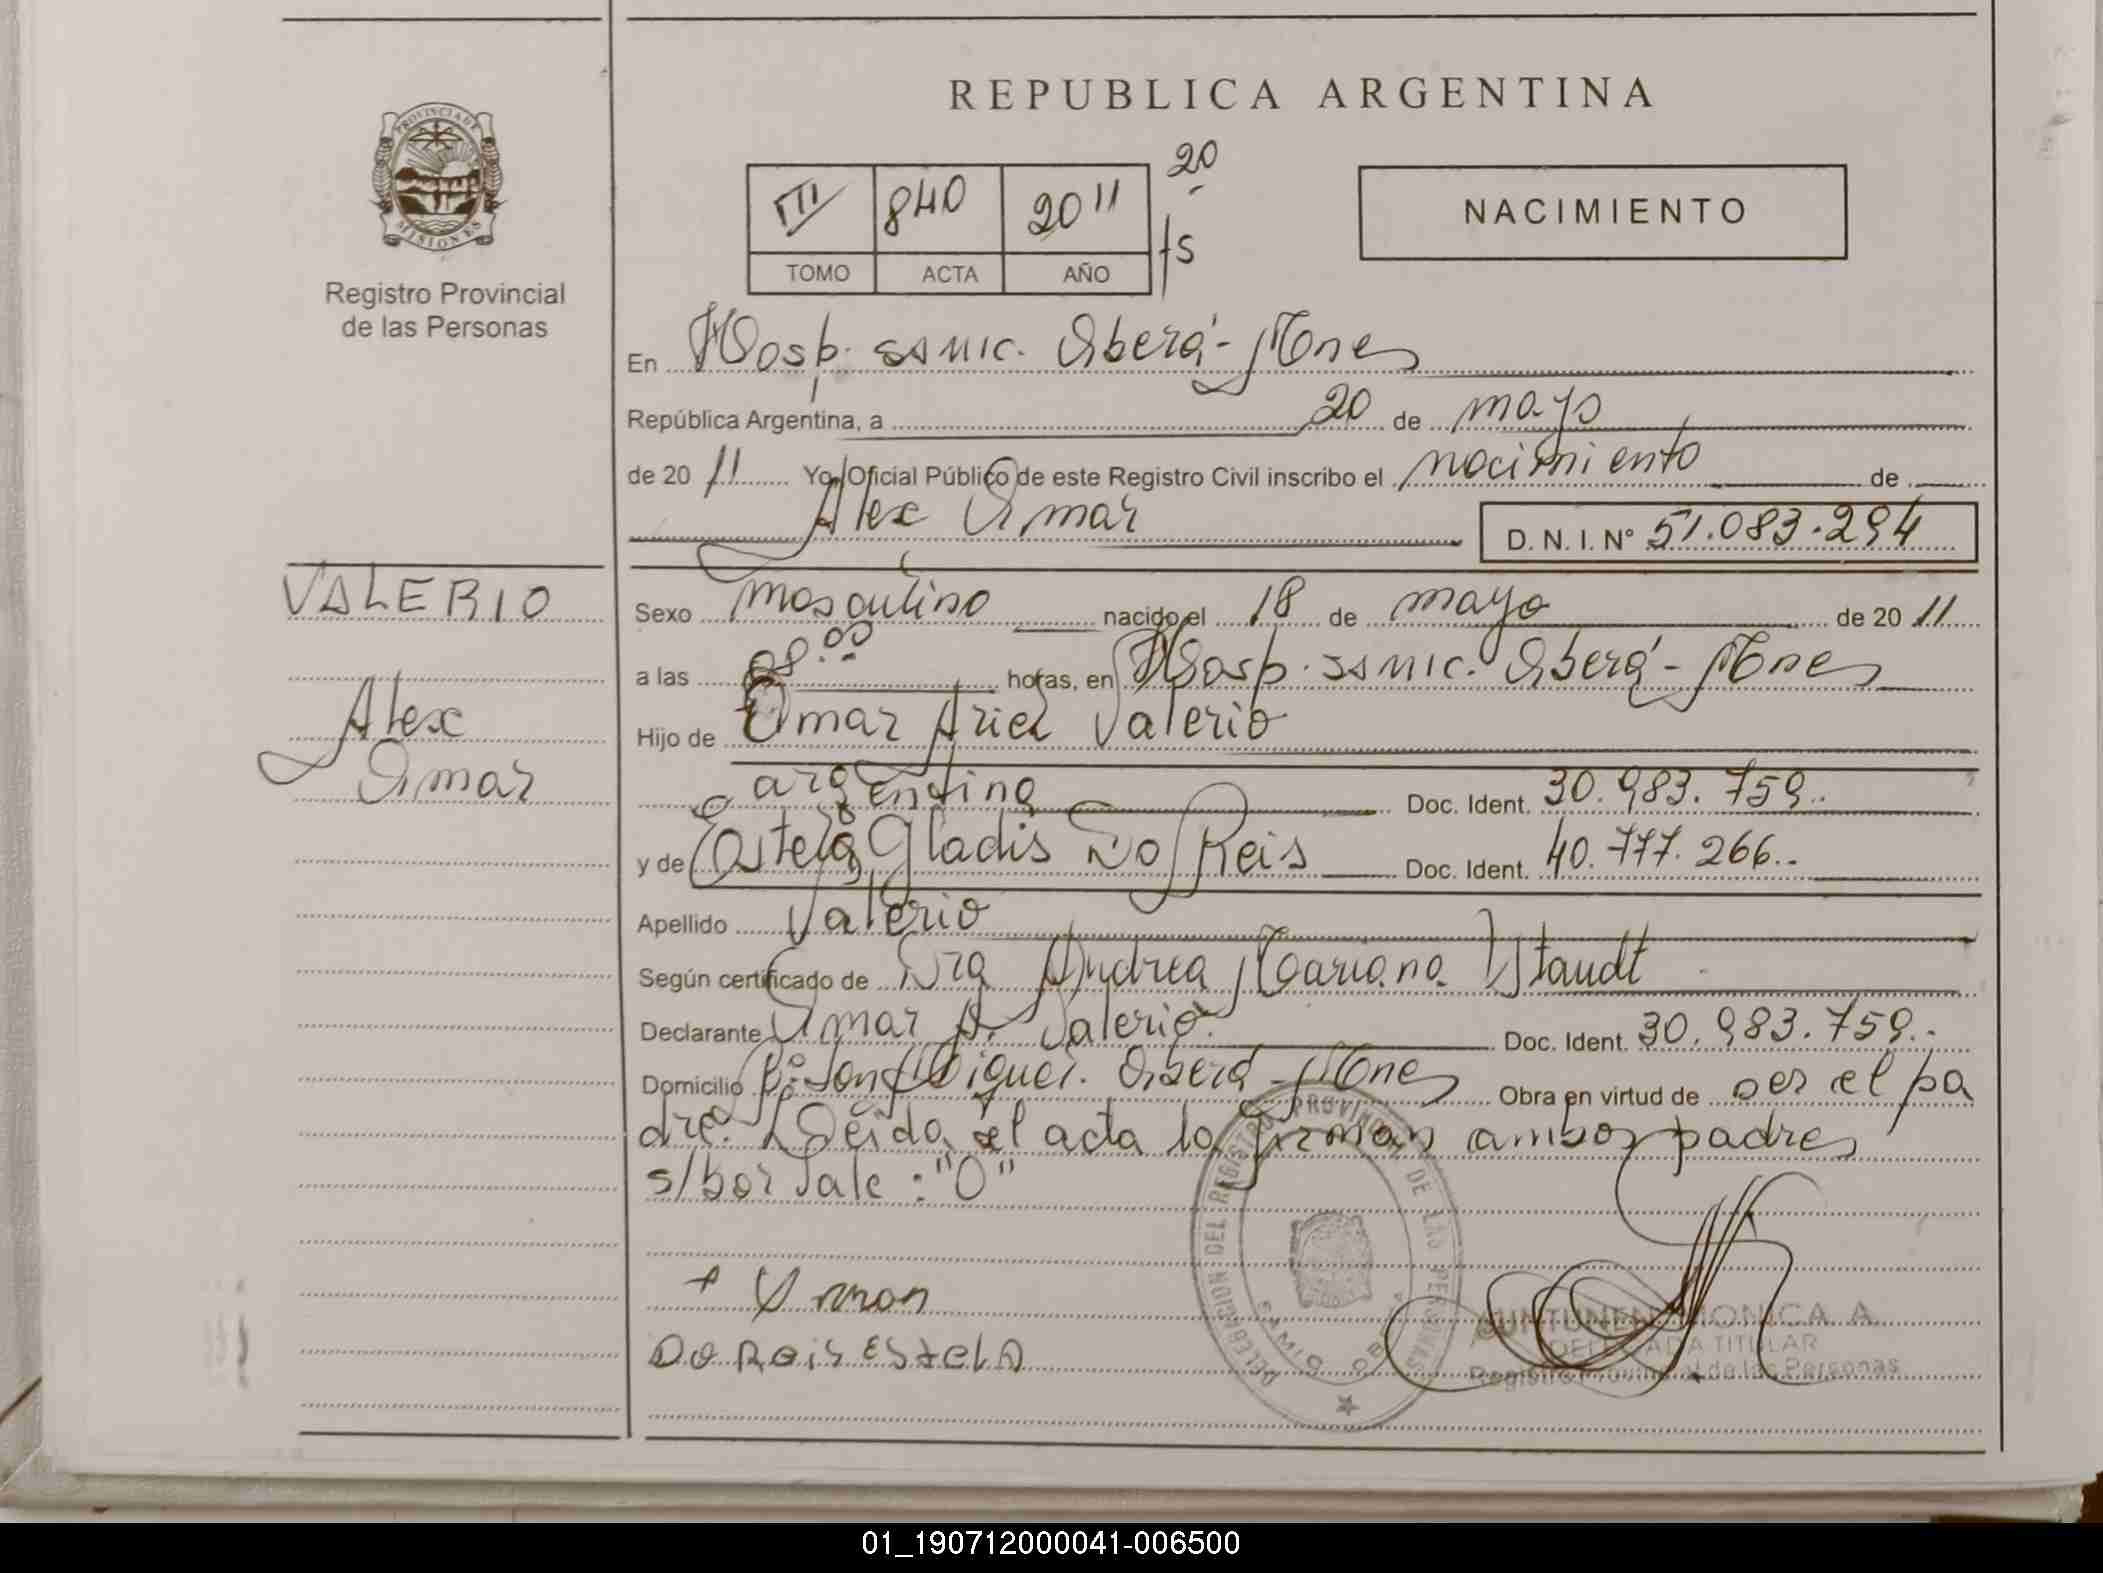 REPUBLICA ARGENTINA
PROVINCIA DE
MISIONES
Registro Provincial
de las Personas
III 840 2011
TOMO ACTA AÑO
20
fs
NACIMIENTO
En Hosp. ssmic. Oberá - Mnes
República Argentina, a 20 de mayo
de 20 11 Yo, Oficial Público de este Registro Civil inscribo el nacimiento de
Alex Omar
D. N. I. Nº 51.083.294
VALERIO
Alex
Omar
Sexo masculino nacido el 18 de mayo de 20 11
a las 08.00 horas, en Hosp. ssmic. Oberá - Mnes
Hijo de Omar Ariel Valerio
argentina Doc. Ident. 30.983.759..
y de Estela Gladis Do Reis Doc. Ident. 40.777.266..
Apellido Valerio
Según certificado de Dra Andrea Mariana Staudt
Declarante Omar A. Valerio. Doc. Ident. 30.983.759.-
Domicilio Bº San Miguel. Oberá - Mnes Obra en virtud de ser el pa
dre. Leída el acta la firman ambos padres
s/bor Vale: "O"
+
DO REIS ESTELA
DELEGACION DEL REGISTRO PROVINCIAL DE LAS PERSONAS
MONICA A.
DELEGADA TITULAR
Registro Provincial de las Personas
01_190712000041-006500